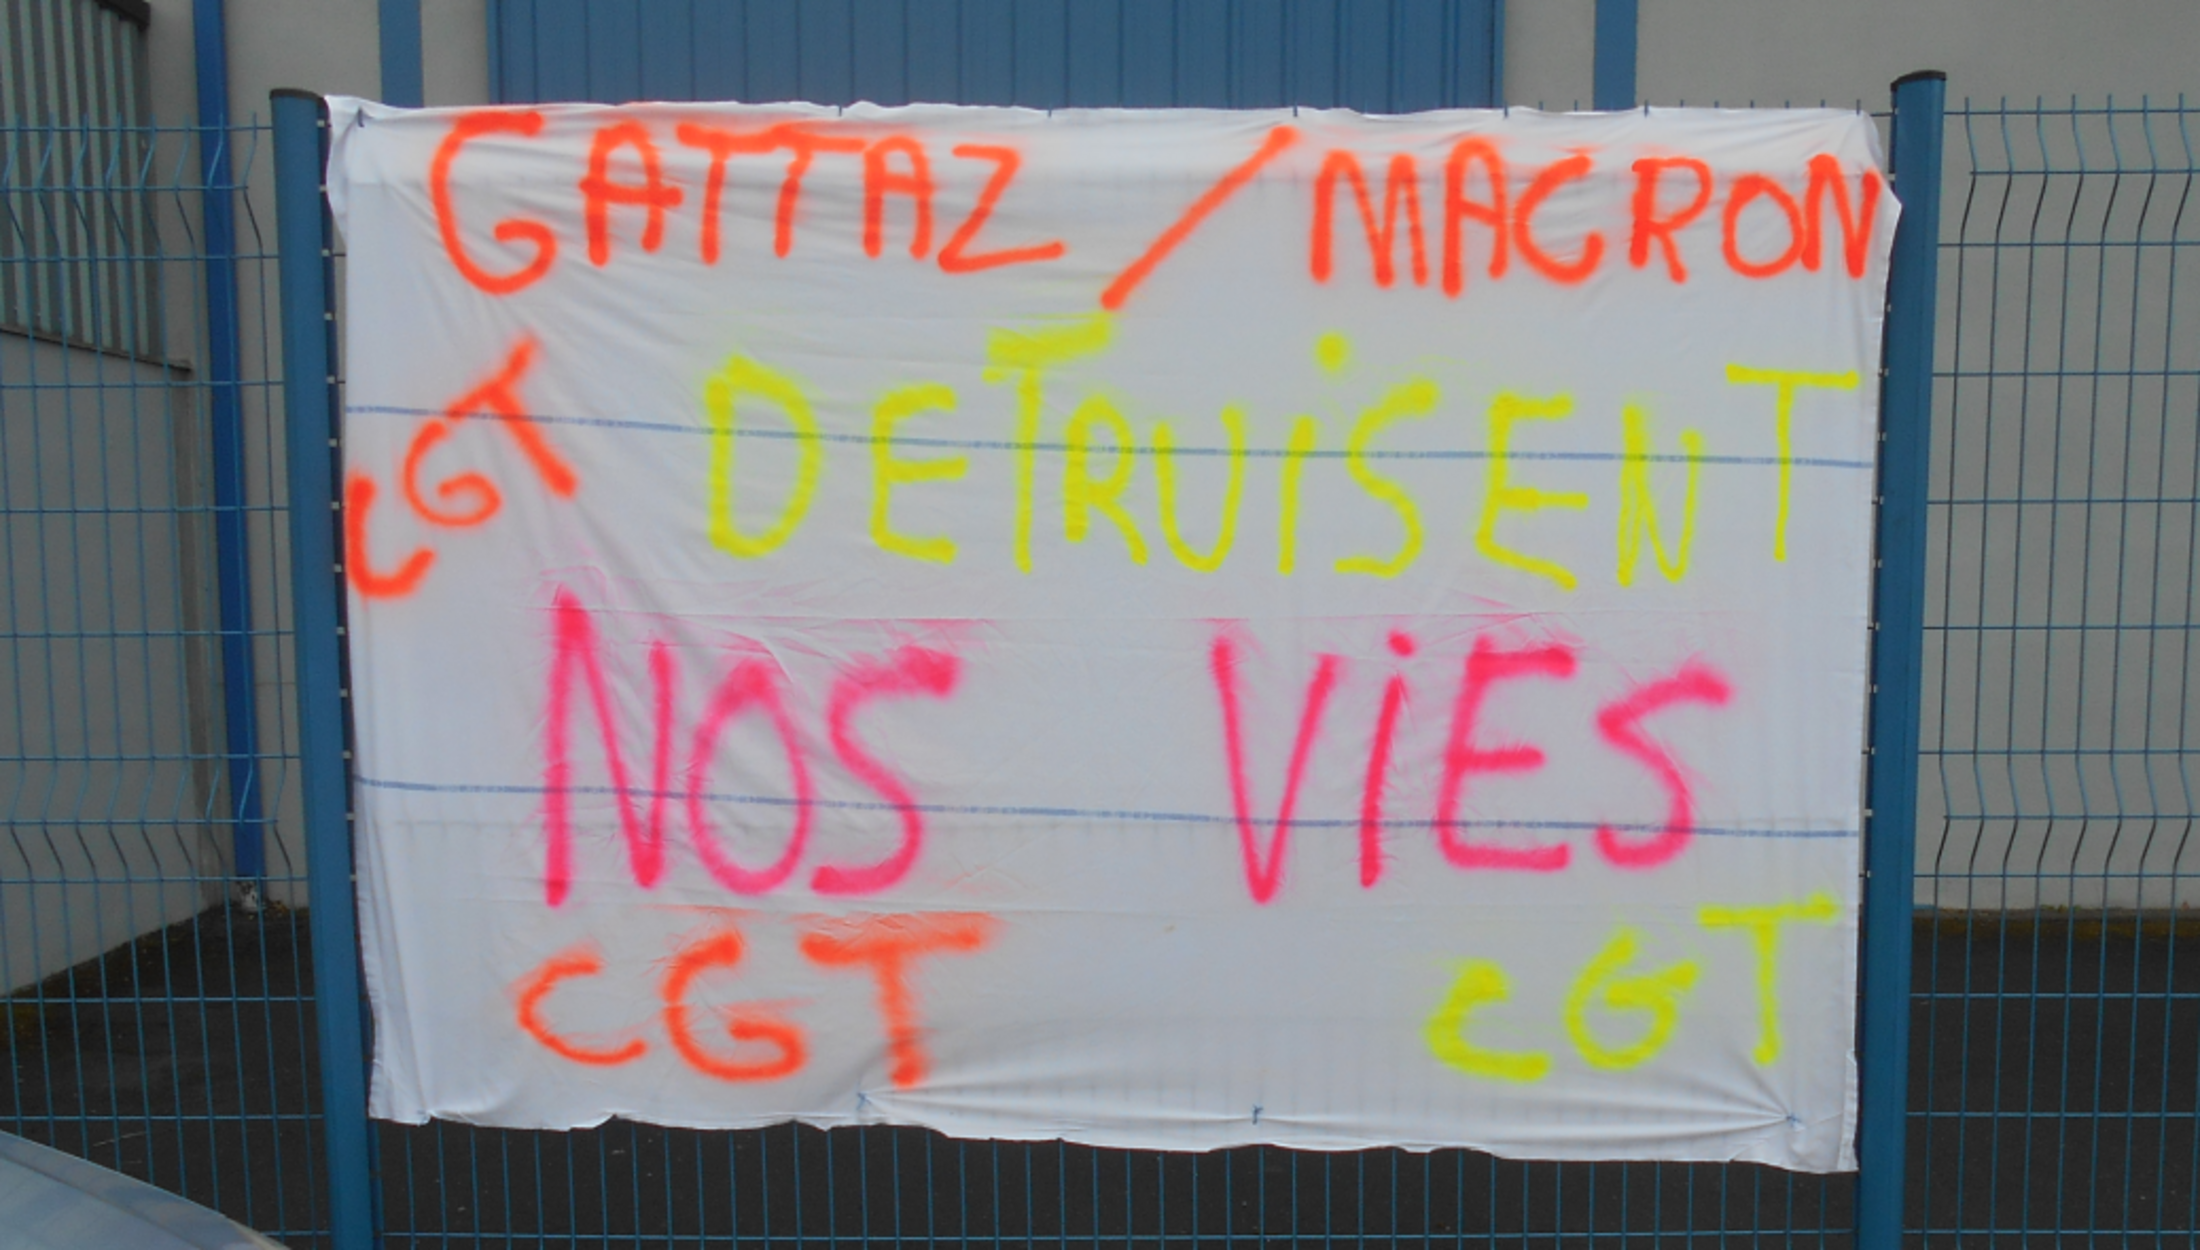 GATTAZ / MACRON
CGT
DETRUiSENT
NOS ViES
CGT CGT